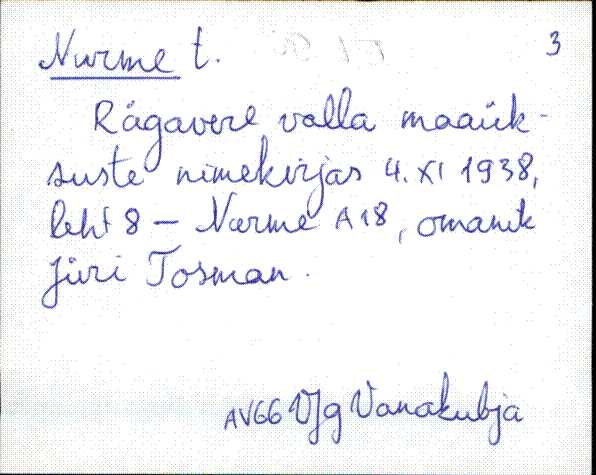 Nurme t. 3
Rägavere valla maaük-
suste nimekirjas 4. XI 1938,
leht 8 – Nurme A18, omanik
Jüri Tosman.
AV66 VJg Vanakubja